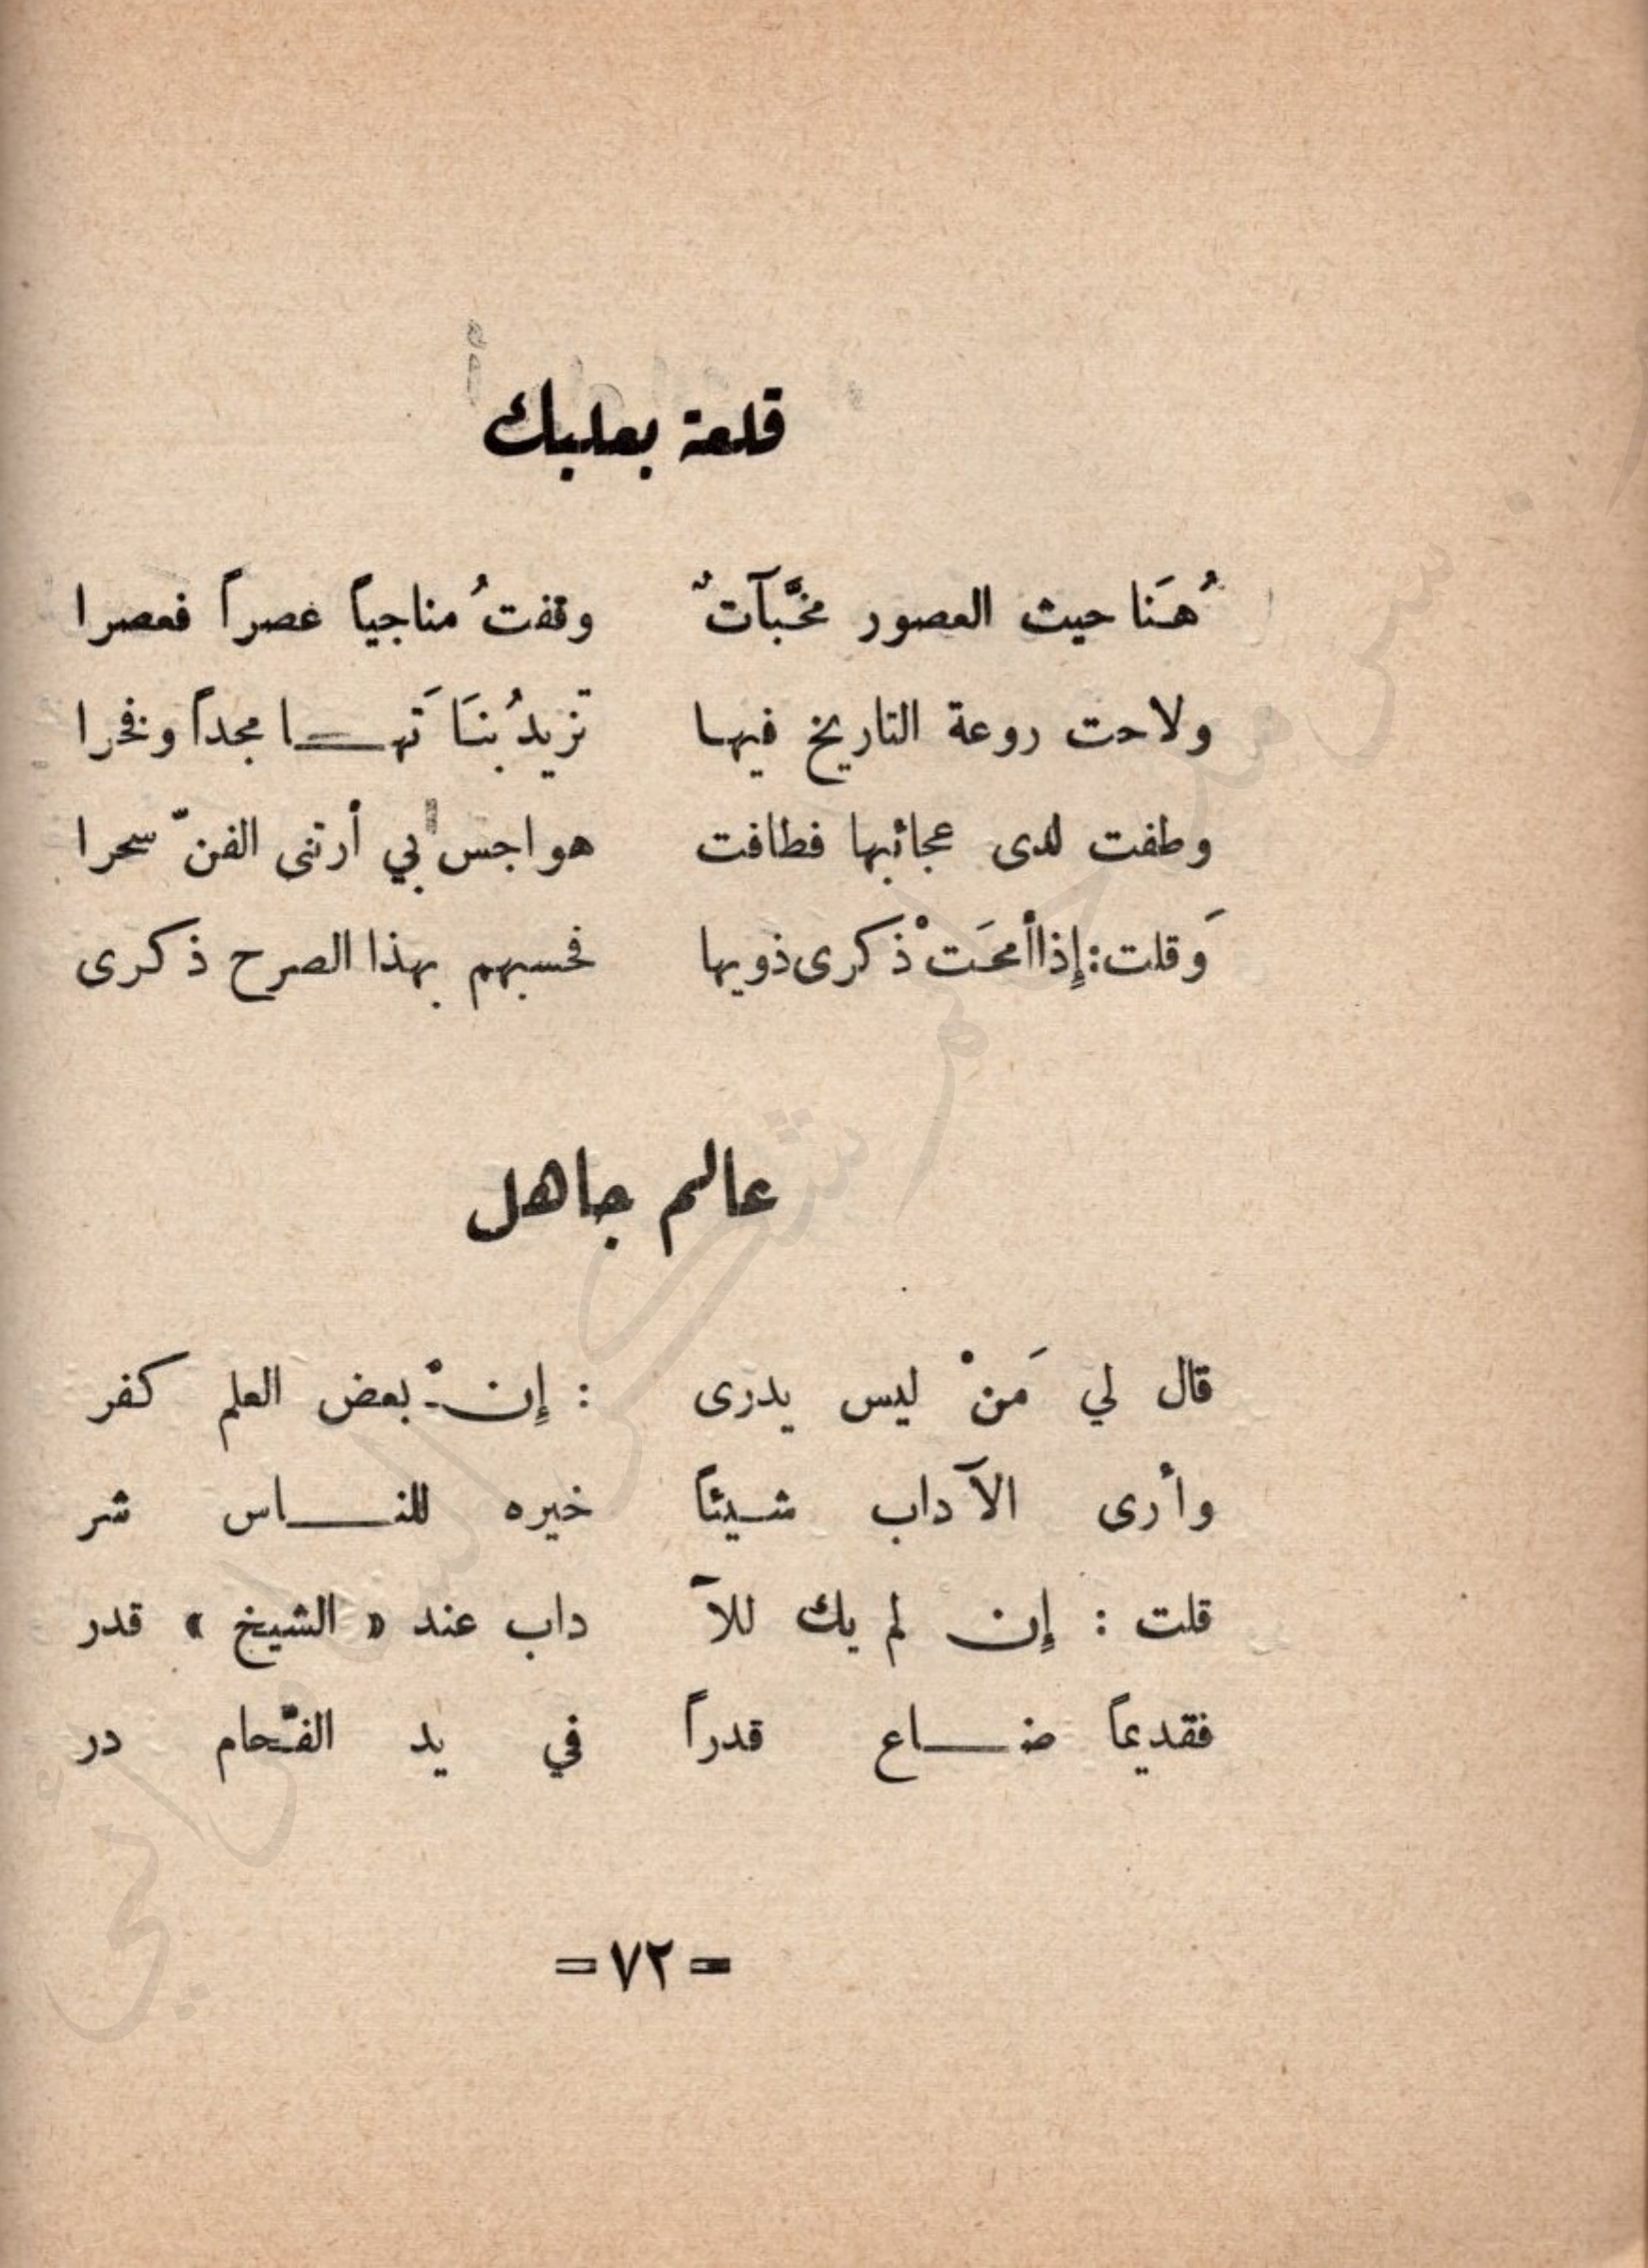 قلعة بعلبك
هُنَا حيث العصور مخبَّآتٌ وقفتُ مناجياً عصراً فعصرا
ولاحت روعة التاريخ فيها تزيدُ بنَاتَهـا مجداً وفخرا
وطفت لدى عجائبها فطافت هواجس بي أرتنى الفنّ سحرا
وَقلت: إِذا أمحَتْ ذكرى ذويها فحسبهم بهذا الصرح ذكرى
عالم جاهل
قال لي مَنْ ليس يدرى : إِنْ بعض العلم كفر
وأرى الآداب شيئاً خيره للناس شر
قلت : إِن لم يك للآ داب عند « الشيخ » قدر
فقديماً ضاع قدراً في يد الفحّام در
= ٧٢ =